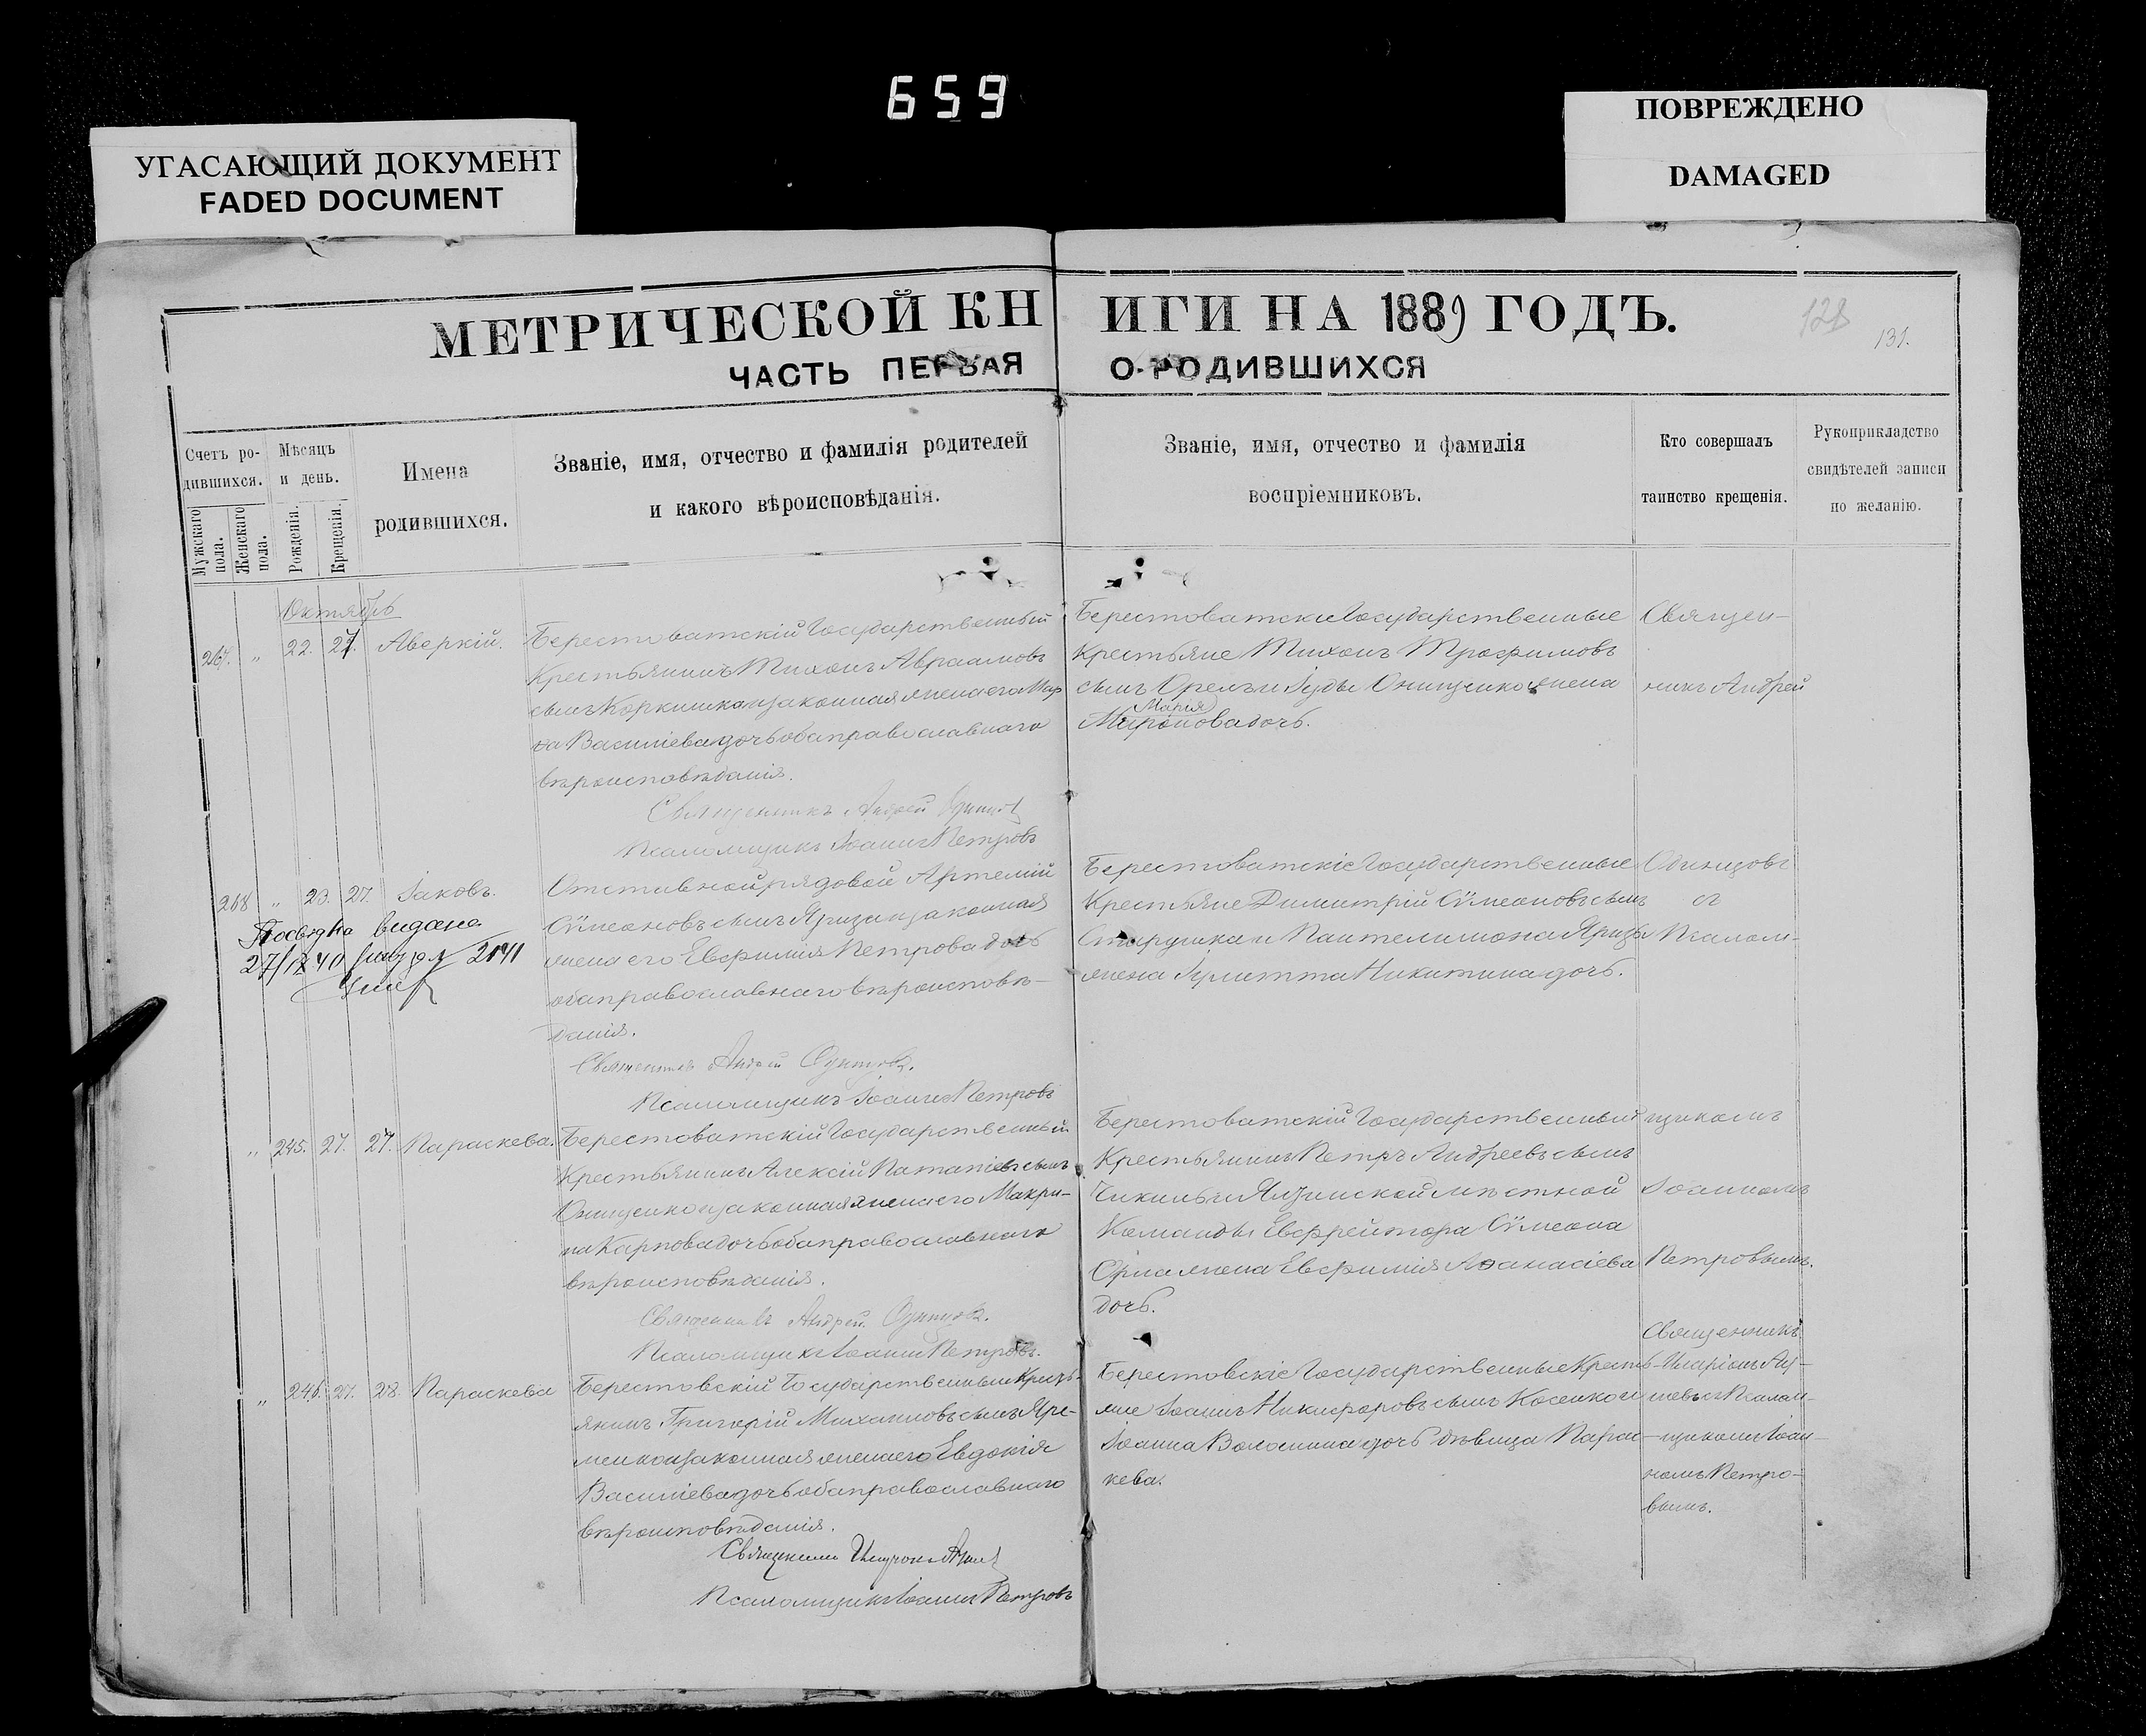 659
УГАСАЮЩИЙ ДОКУМЕНТ
FADED DOCUMENT
ПОВРЕЖДЕНО
DAMAGED
МЕТРИЧЕСКОЙ КНИГИ НА 1889 ГОДЪ.
128
131.
ЧАСТЬ ПЕРВАЯ О РОДИВШИХСЯ
Счетъ ро-
дившихся.
Мужскаго пола.
Женскаго пола.
Мѣсяцъ
и день.
Рожденія.
Крещенія.
Имена
родившихся.
Званіе, имя, отчество и фамилія родителей
и какого вѣроисповѣданія.
Званіе, имя, отчество и фамилія
воспріемниковъ.
Кто совершалъ
таинство крещенія.
Рукоприкладство
свидѣтелей записи
по желанію.
Октябрь
267. " 22. 27. Аверкій.
Берестоватскій Государственный
Крестьянинъ Тихонъ Авраамовъ
сынъ Коркишко и законная жена его Мар
ѳа Василіева дочь оба православнаго
вѣроисповѣданія.
Священникъ Андрей Одинцовъ
Псаломщикъ Іоаннъ Петровъ
Берестоватскіе Государственные
Крестьяне Тихонъ Трофимовъ
сынъ Орелъ и Іуды Онищенко жена
Мария
Миронова дочь.
Священ-
никъ Андрей
268 " 23. 27. Іаковъ.
Посвідка видана
27/IX 40
2141
Отставной рядовой Артемій
Сѵмеоновъ сынъ Яриза и законная
жена его Евфимія Петрова дочь
оба православнаго вѣроисповѣ-
данія.
Священникъ Андрей Одинцовъ.
Псаломщикъ Іоаннъ Петровъ
Берестоватскіе Государственные
Крестьяне Димитрій Сѵмеоновъ сынъ
Старушка и Пантелимона Яризы
жена Іулитта Никитина дочь.
Одинцовъ
съ
Псалом-
" 245. 27. 27. Параскева.
Берестоватскій Государственный
Крестьянинъ Алексій Патапіевъ сынъ
Онищенко и законная жена его Макри-
на Карпова дочь оба православнаго
вѣроисповѣданія.
Священникъ Андрей Одинцовъ.
Псаломщикъ Іоаннъ Петровъ.
Берестоватскій Государственный
Крестьянинъ Петръ Андреевъ сынъ
Чикильи Ялтинской мѣстной
Команды Евфрейтора Сѵмеона
Орла жена Евфимія Аѳанасіева
дочь.
щикомъ
Іоанномъ
Петровымъ.
" 246. 27. 28. Параскева
Берестовскій Государственный Кресть-
янинъ Григорій Михаиловъ сынъ Яре-
менко и законная жена его Евдокія
Василіева дочь оба православнаго
вѣроисповѣданія.
Псаломщикъ Іоаннъ Петровъ
Берестовскіе Государственные Кресть-
яне Іоаннъ Никифоровъ сынъ Косенко и
Іоанна Волошина дочь дѣвица Парас-
кева.
Священникъ
Иларіонъ
съ Псалом-
щикомъ Іоан-
номъ Петро-
вымъ.